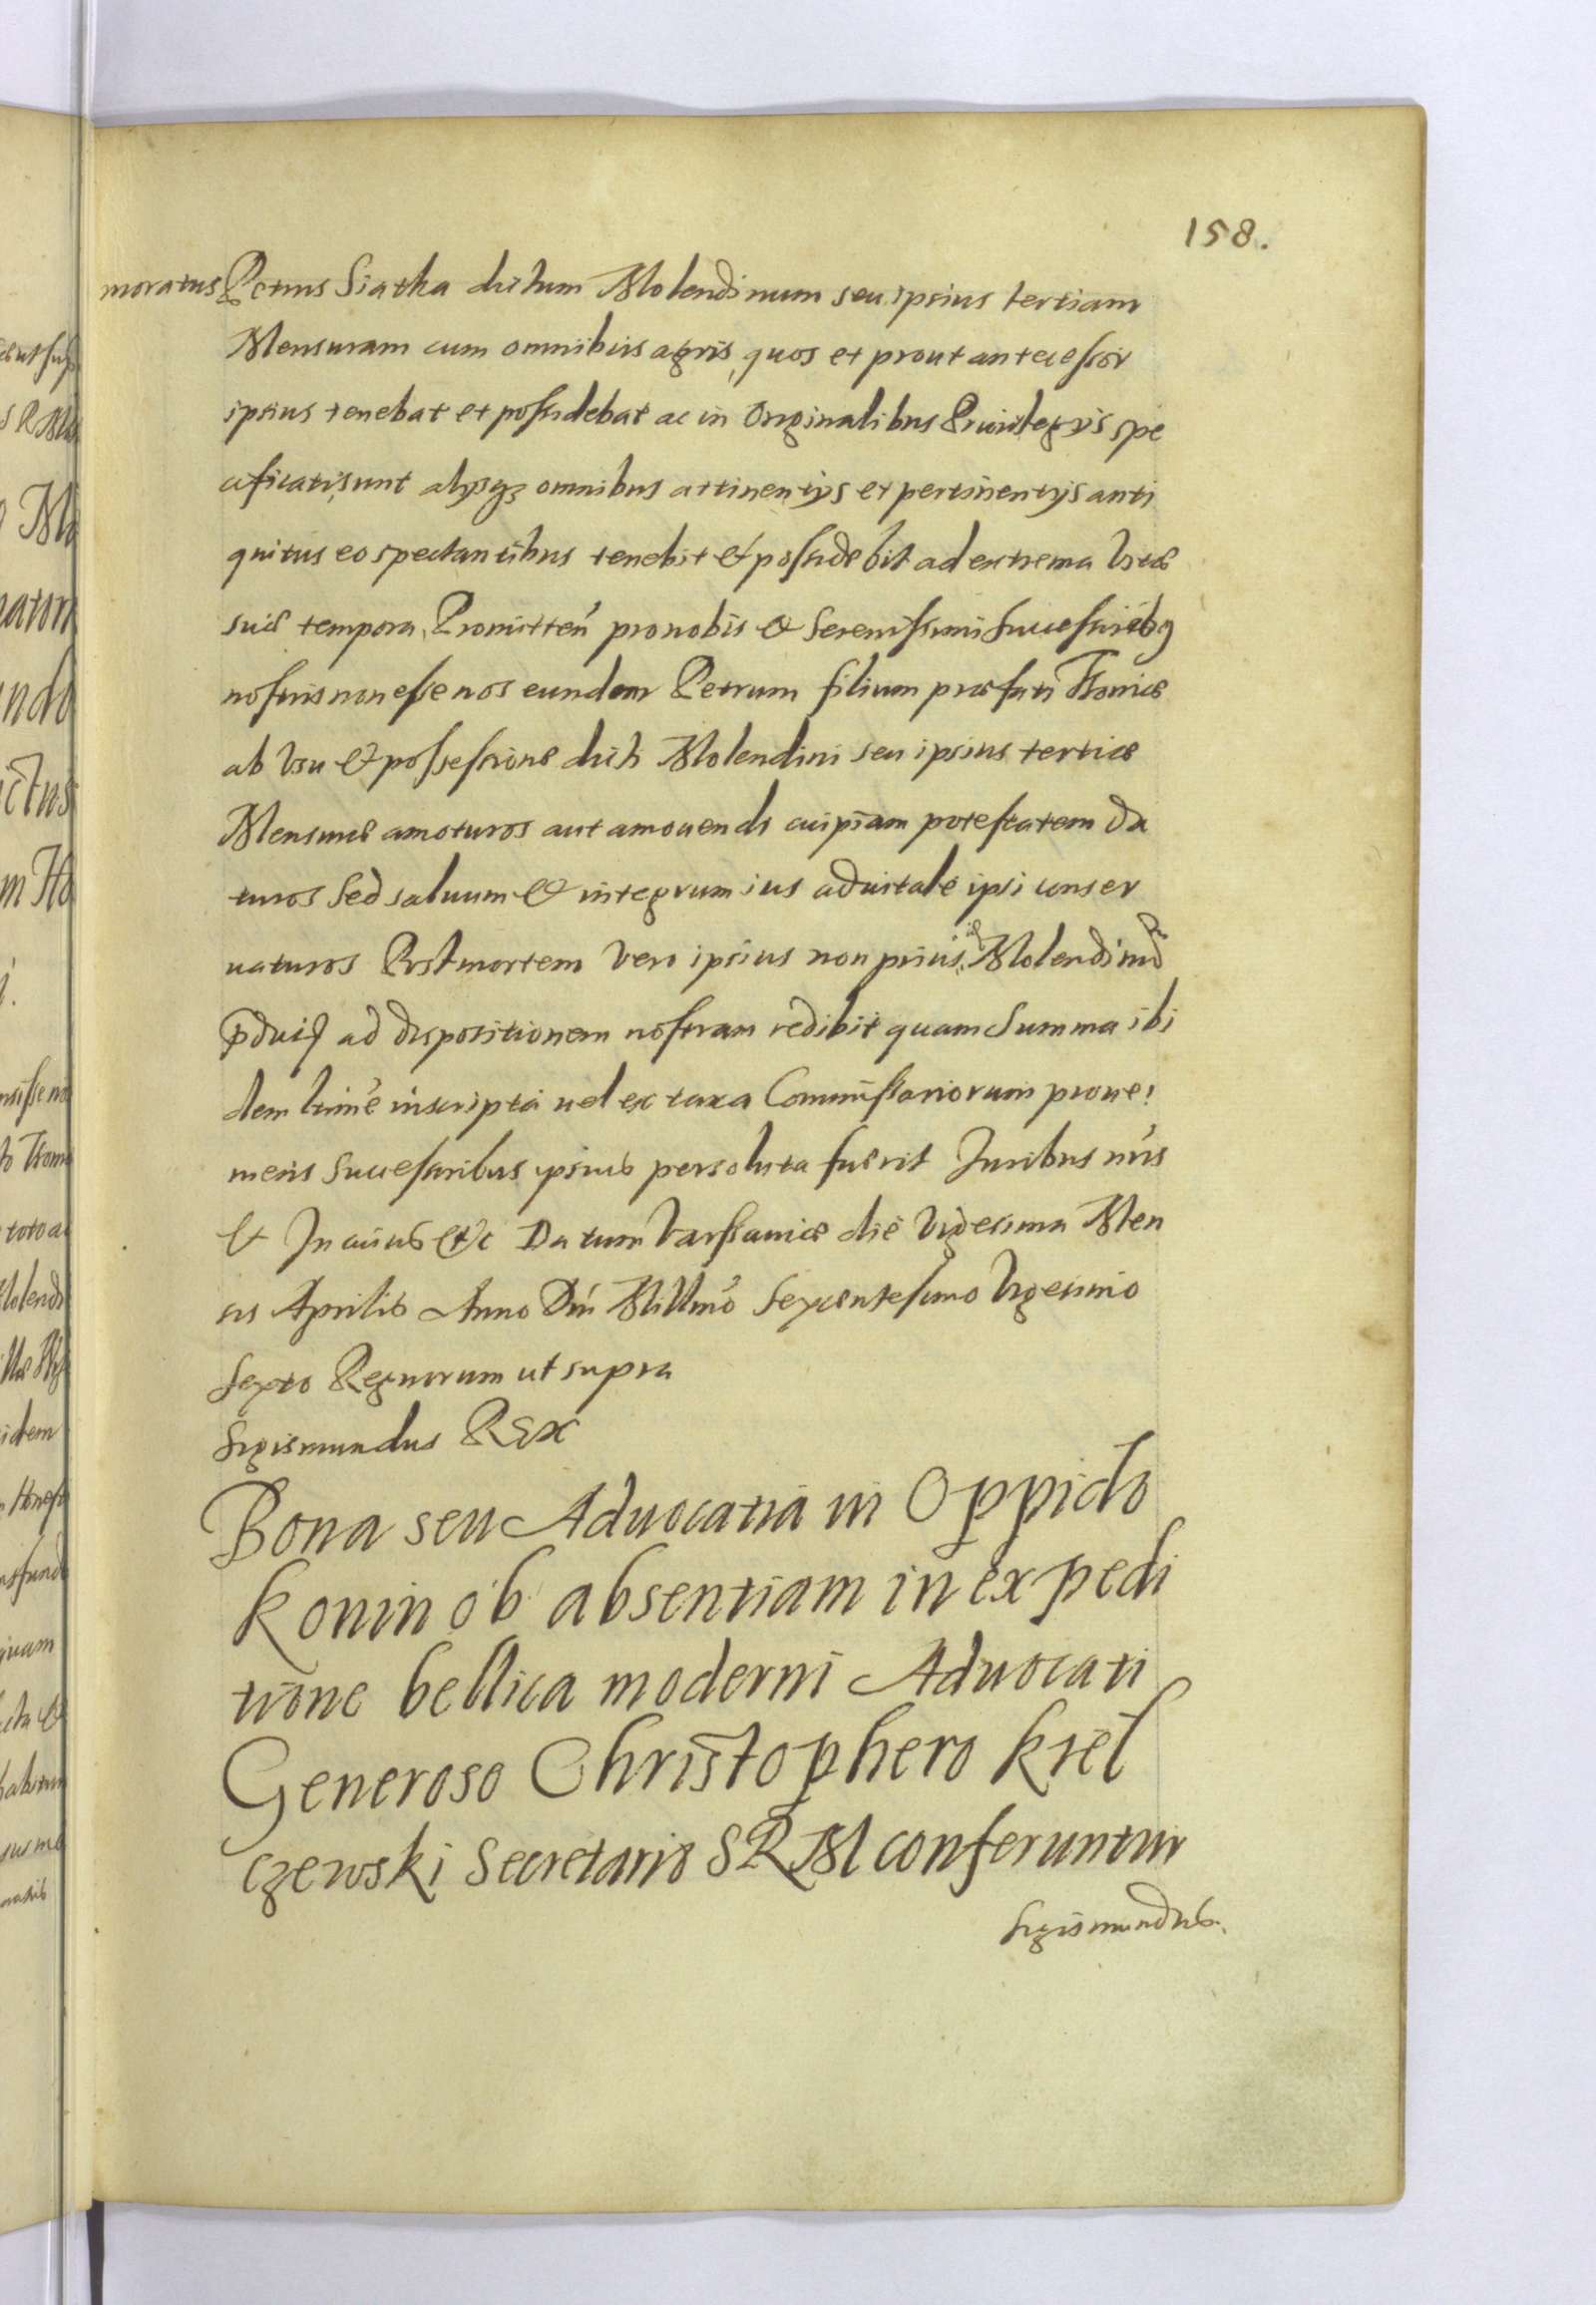 158.
moratus Petrus Siatka dictum Molendinum seu ipsius tertiam
Mensuram cum omnibus agris, quos et prout antecessor
ipsius tenebat et possidebat ac in Originalibus Priuilegijs spe
cificati sunt alijsq3 omnibus attinentijs et pertinentijs anti
quitus eo spectantibus tenebit & possidebit ad extrema Vitæ
suæ tempora, Promitten pro nobis & Serenissimis
nostris non esse nos eundem Petrum filium præfati
ab Vsu & possessione dicti Molendini seu ipsius tertiæ
Mensuræ amoturos aut amouendi cuipiam potestatem da
turos Sed saluum & integrum ius aduitale ipsi conser
uaturos Post mortem Vero ipsius non prius Molendinu
ad dispositionem nostram redibit quam Summa ibi
dem inscripta uel ex taxa Commissariorum proue
niens Successoribus ipsius persoluta fuerit Juribus nris
& In cuius &c Datum Varssauiæ die Vigesima Men
sis Aprilis Anno Dni Millmo Sexcentesimo Vigesimo
Sexto Regnorum ut supra
Sigismundus REX
Bona seu Aduocatia in Oppido
Konin ob absentiam in expedi
tione bellica moderni Aduocati
Generoso Christophero Kiel
czewski Secretario SRM conferuntur
Sigismundus.